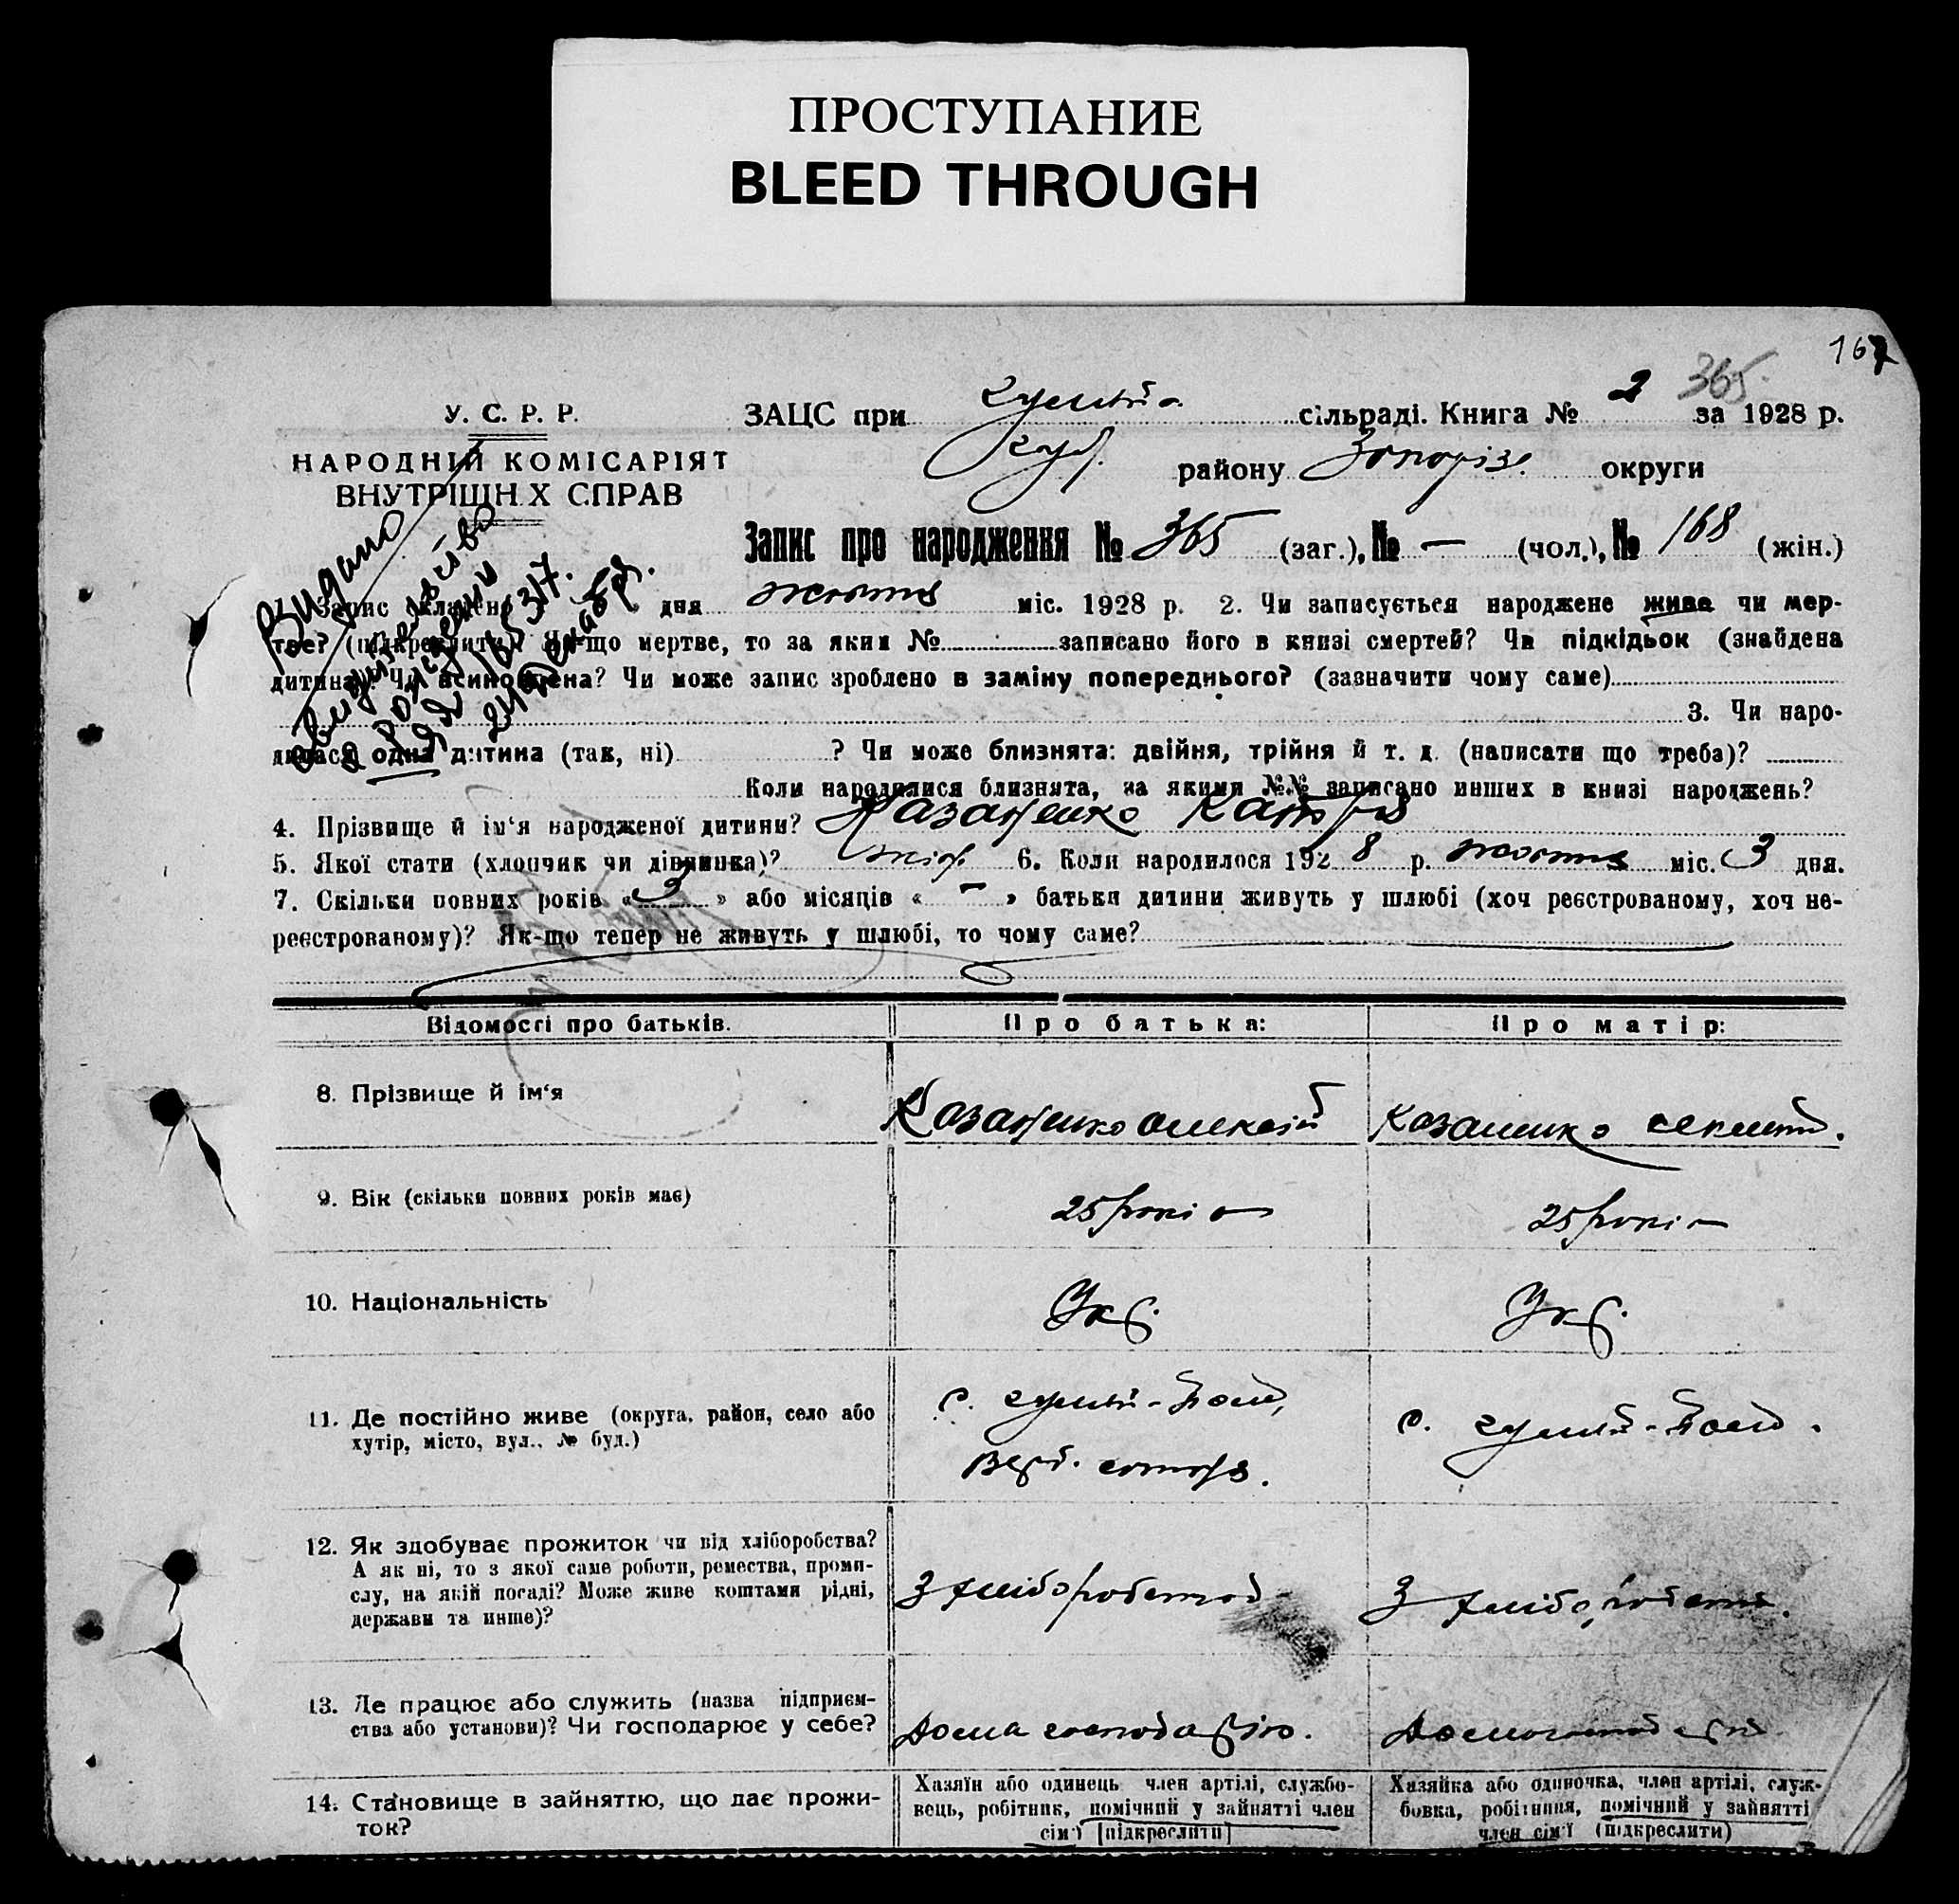 ПРОСТУПАНИЕ
BLEED THROUGH
167
365.
У. С. Р. Р.
НАРОДНІЙ КОМІСАРІЯТ
ВНУТРІШН.Х СПРАВ
ЗАЦС при сільраді. Книга № 2 за 1928 р.
району Запоріз. округи
Запис про народження № 365 (заг.), № — (чол.), № 168 (жін.)
Видано
Запис складено дня жовтня міс. 1928 р. 2. Чи записується народжене живе чи мер-
тве? (підкреслити) Як-що мертве, то за яким № записано його в книзі смертей? Чи підкідьок (знайдена
дитина)? Чи всиновлена? Чи може запис зроблено в заміну попереднього? (зазначити чому саме)
3. Чи наро-
дилася одна дитина (так, ні) ? Чи може близнята: двійня, трійня й т. д. (написати що треба)?
Коли народилися близнята, за якими №№ записано инших в книзі народжень?
4. Прізвище й ім'я народженої дитини? Казаненко Катря
5. Якої стати (хлопчик чи дівчинка)? жін. 6. Коли народилося 1928 р. жовтня міс. 3 дня.
7. Скільки повних років « 3 » або місяців « – » батьки дитини живуть у шлюбі (хоч реєстрованому, хоч не-
реєстрованому)? Як-що тепер не живуть у шлюбі, то чому саме?
Відомості про батьків. Про батька: Про матір:
8. Прізвище й ім'я
Казаненко Олексій Казаненко
9. Вік (скільки повних років має)
25 років 25 років
10. Національність
Укр. Укр.
11. Де постійно живе (округа, район, село або
хутір, місто, вул., № буд.)
с. Гуляй-Поле, с. Гуляй-Поле.
12. Як здобуває прожиток чи від хліборобства?
А як ні, то з якої саме роботи, ремества, проми-
слу, на якій посаді? Може живе коштами рідні,
держави та инше)?
З хліборобства З хліборобства.
13. Де працює або служить (назва підприєм-
ства або установи)? Чи господарює у себе?
Дома господарює. Дома господарює
14. Становище в зайняттю, що дає прожи-
ток?
Хазяїн або одинець член артілі, службо-
вець, робітник, помічний у зайнятті член
сім'ї [підкреслити]
Хазяйка або одиночка, член артілі, служ-
бовка, робітниця, помічний у зайнятті
член сім'ї (підкреслити)